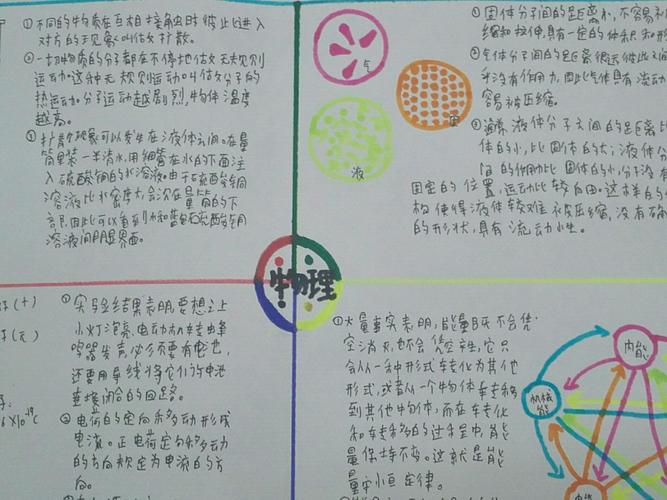 ①不同的物质在互相接触时彼此进入
对方的现象叫做扩散。
②一切物质的分子都在不停地做无规则
运动。这种无规则运动叫做分子的
热运动。分子运动越剧烈,物体温度
越高。
③扩散现象可以发生在液体之间。在量
筒里装一半清水,用细管在水的下面注
入硫酸铜的水溶液。由于硫酸铜
溶液比水密度大,会沉在量筒的下
部,因此可以看到水和蓝色硫酸铜
溶液间明显界面。
气
固
液
①固体分子间的距离小,不容易
缩和拉伸,具有一定的体积和形
②气体分子间的距离很远,彼此之间
乎没有作用力,因此气体具有流动
容易被压缩。
液体分子之间的距离比
体的小,比固体的大;液体分
间的作用力比固体的小,分子
固定的位置,运动比较自由。这样的
构使得液体较难被压缩,没有确
的形状,具有流动性。
物理
(+)
①实验结果表明,要想让
小灯泡亮、电动机转、蜂
鸣器发声,必须要有电池,
还要用导线将它们与电池
连接闭合的回路。
②电荷的定向移动形成
电流。正电荷定向移动
的方向规定为电流的方
向。
①大量事实表明,能量既不会凭
空消灭,也不会凭空产生,它只
会从一种形式转化为其他
形式,或者从一个物体转移
到其他物体,而在转化
和转移的过程中,能
量保持不变。这就是能
量守恒定律。
内能
机械
能